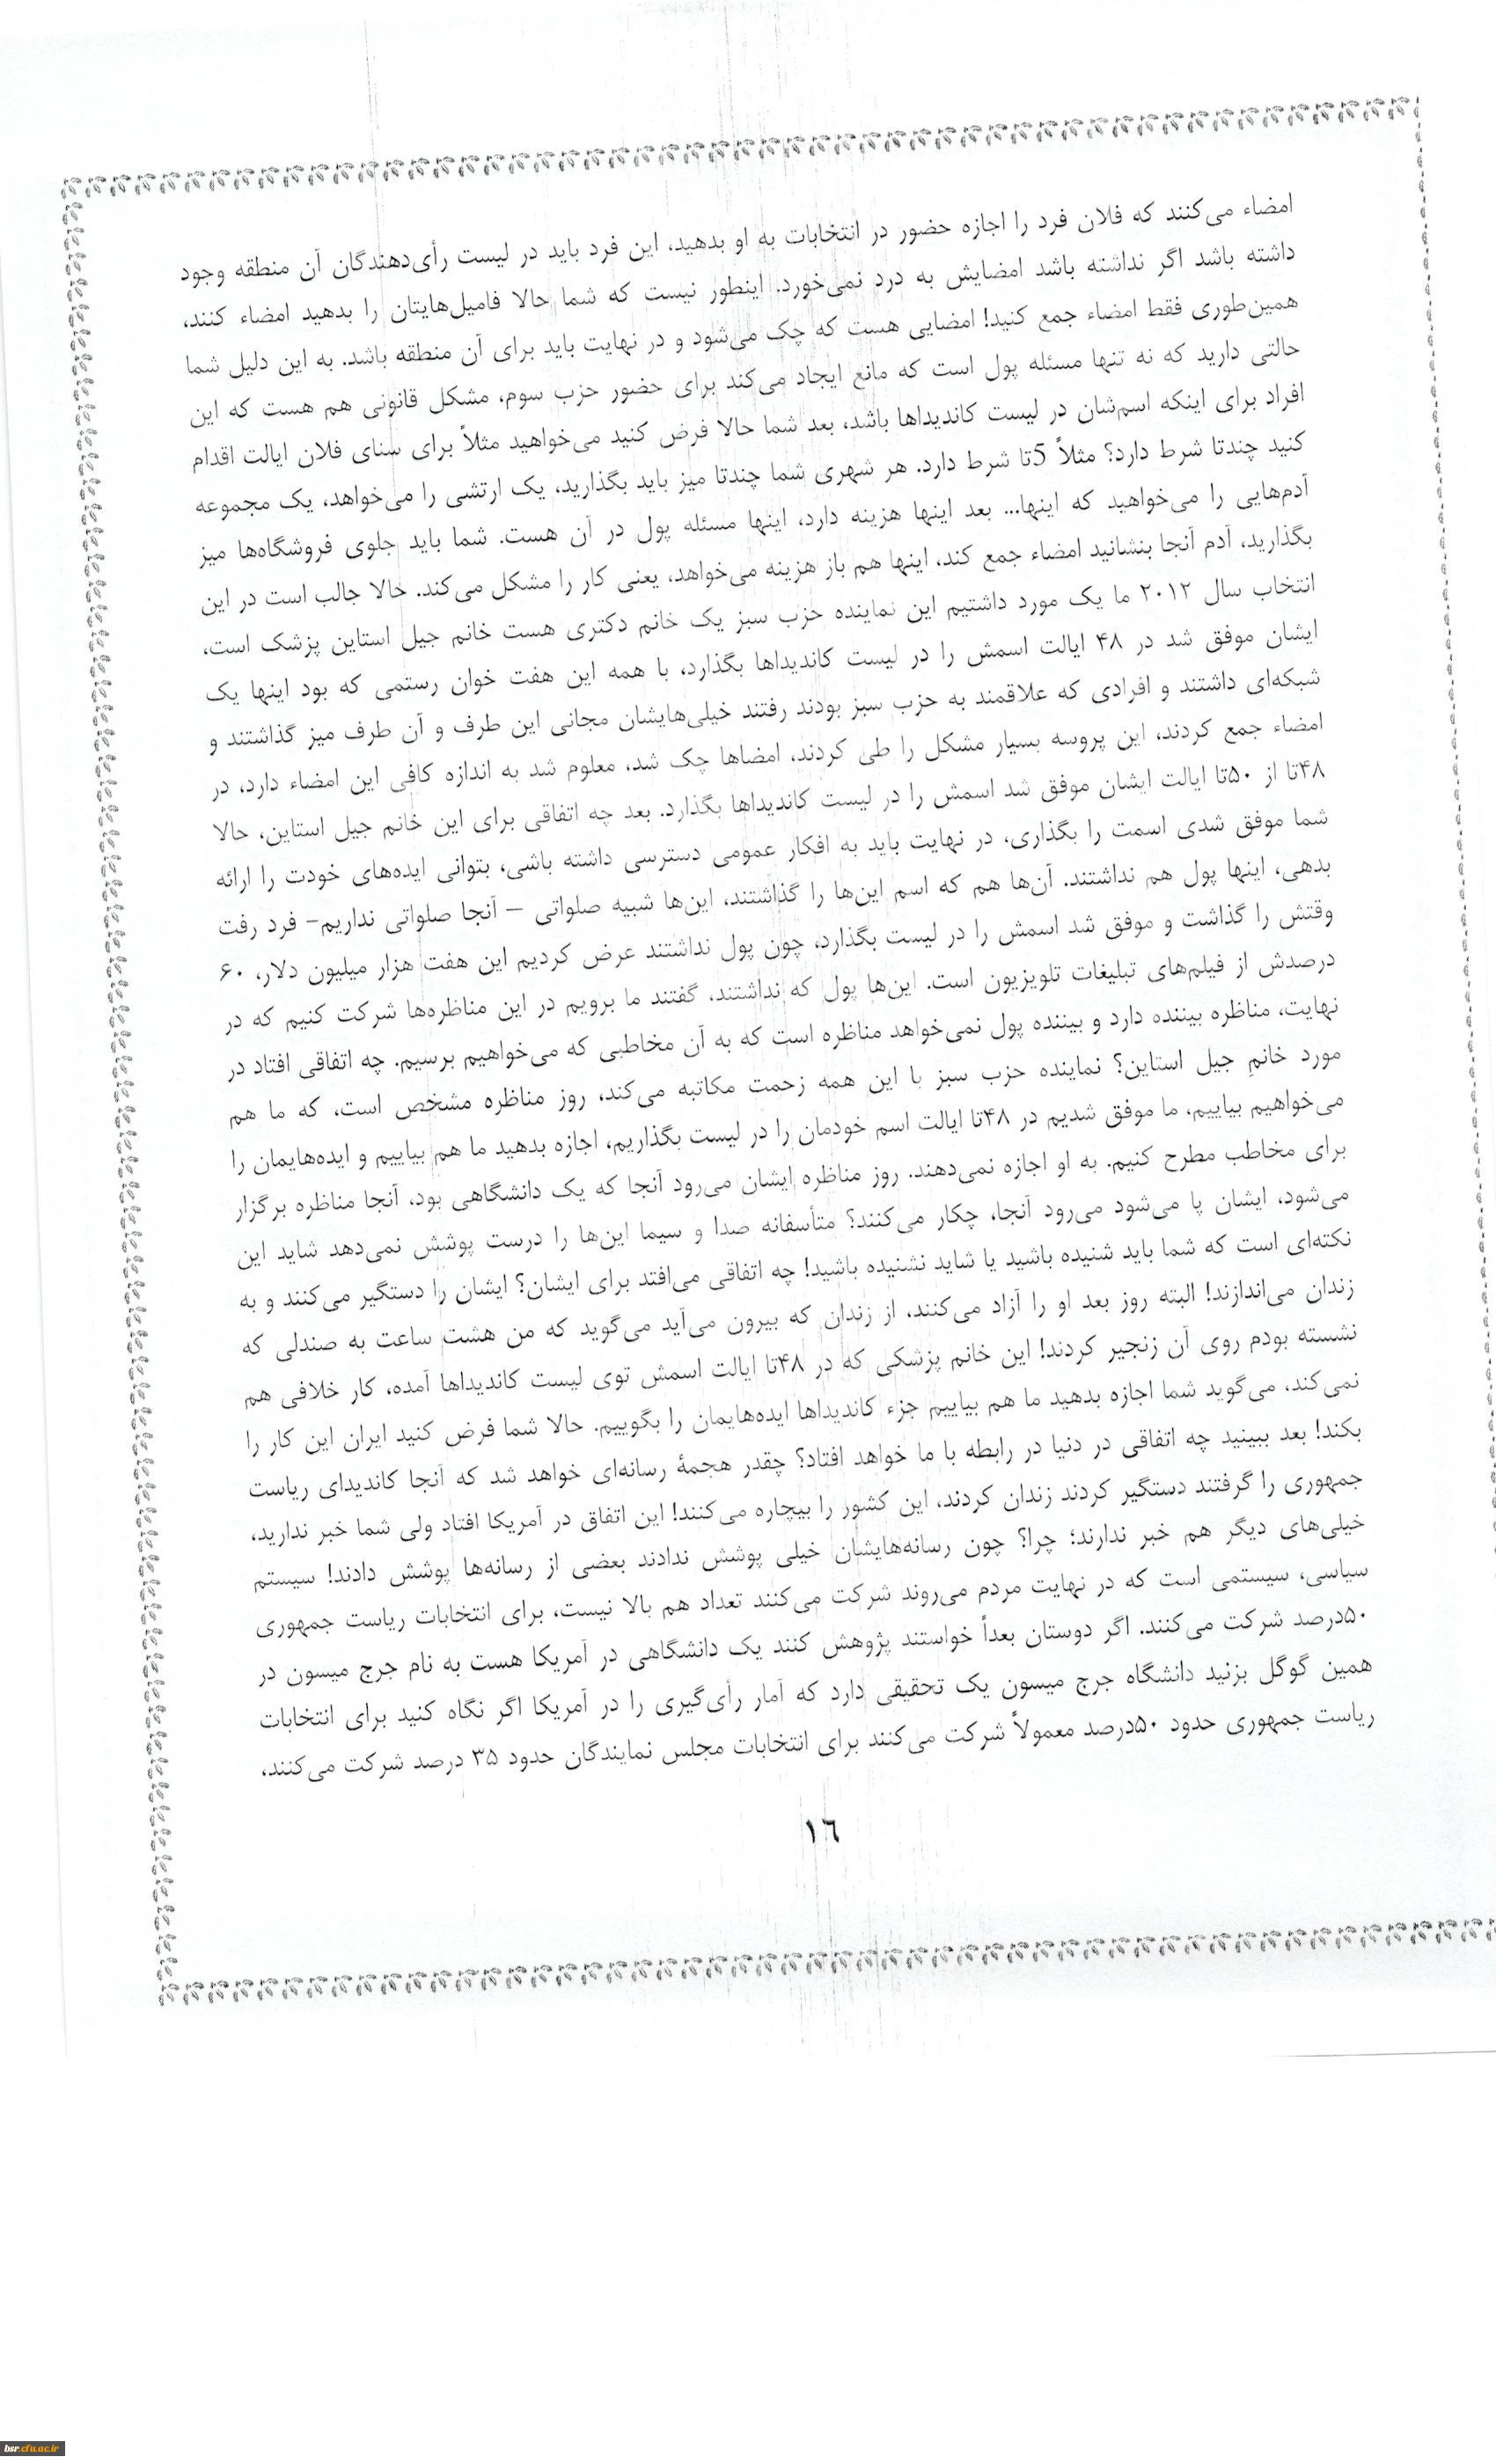 امضاء می‌کنند که فلان فرد را اجازه حضور در انتخابات به او بدهید، این فرد باید در لیست رأی‌دهندگان آن منطقه وجود
داشته باشد اگر نداشته باشد امضایش به درد نمی‌خورد. اینطور نیست که شما حالا فامیل‌هایتان را بدهید امضاء کنند،
همین‌طوری فقط امضاء جمع کنید! امضایی هست که چک می‌شود و در نهایت باید برای آن منطقه باشد. به این دلیل شما
حالتی دارید که نه تنها مسئله پول است که مانع ایجاد می‌کند برای حضور حزب سوم، مشکل قانونی هم هست که این
افراد برای اینکه اسم‌شان در لیست کاندیداها باشد، بعد شما حالا فرض کنید می‌خواهید مثلاً برای سنای فلان ایالت اقدام
کنید چندتا شرط دارد؟ مثلاً 5تا شرط دارد. هر شهری شما چندتا میز باید بگذارید، یک ارتشی را می‌خواهد، یک مجموعه
آدم‌هایی را می‌خواهید که اینها... بعد اینها هزینه دارد، اینها مسئله پول در آن هست. شما باید جلوی فروشگاه‌ها میز
بگذارید، آدم آنجا بنشانید امضاء جمع کند، اینها هم باز هزینه می‌خواهد، یعنی کار را مشکل می‌کند. حالا جالب است در این
انتخاب سال ۲۰۱۲ ما یک مورد داشتیم این نماینده حزب سبز یک خانم دکتری هست خانم جیل استاین پزشک است،
ایشان موفق شد در ۴۸ ایالت اسمش را در لیست کاندیداها بگذارد، با همه این هفت خوان رستمی که بود اینها یک
شبکه‌ای داشتند و افرادی که علاقمند به حزب سبز بودند رفتند خیلی‌هایشان مجانی این طرف و آن طرف میز گذاشتند و
امضاء جمع کردند، این پروسه بسیار مشکل را طی کردند، امضاها چک شد، معلوم شد به اندازه کافی این امضاء دارد، در
۴۸تا از ۵۰تا ایالت ایشان موفق شد اسمش را در لیست کاندیداها بگذارد. بعد چه اتفاقی برای این خانم جیل استاین، حالا
شما موفق شدی اسمت را بگذاری، در نهایت باید به افکار عمومی دسترسی داشته باشی، بتوانی ایده‌های خودت را ارائه
بدهی، اینها پول هم نداشتند. آن‌ها هم که اسم این‌ها را گذاشتند، این‌ها شبیه صلواتی – آنجا صلواتی نداریم- فرد رفت
وقتش را گذاشت و موفق شد اسمش را در لیست بگذارد، چون پول نداشتند عرض کردیم این هفت هزار میلیون دلار، ۶۰
درصدش از فیلم‌های تبلیغات تلویزیون است. این‌ها پول که نداشتند، گفتند ما برویم در این مناظره‌ها شرکت کنیم که در
نهایت، مناظره بیننده دارد و بیننده پول نمی‌خواهد مناظره است که به آن مخاطبی که می‌خواهیم برسیم. چه اتفاقی افتاد در
مورد خانمِ جیل استاین؟ نماینده حزب سبز با این همه زحمت مکاتبه می‌کند، روز مناظره مشخص است، که ما هم
می‌خواهیم بیاییم، ما موفق شدیم در ۴۸تا ایالت اسم خودمان را در لیست بگذاریم، اجازه بدهید ما هم بیاییم و ایده‌هایمان را
برای مخاطب مطرح کنیم. به او اجازه نمی‌دهند. روز مناظره ایشان می‌رود آنجا که یک دانشگاهی بود، آنجا مناظره برگزار
می‌شود، ایشان پا می‌شود می‌رود آنجا، چکار می‌کنند؟ متأسفانه صدا و سیما این‌ها را درست پوشش نمی‌دهد شاید این
نکته‌ای است که شما باید شنیده باشید یا شاید نشنیده باشید! چه اتفاقی می‌افتد برای ایشان؟ ایشان را دستگیر می‌کنند و به
زندان می‌اندازند! البته روز بعد او را آزاد می‌کنند، از زندان که بیرون می‌آید می‌گوید که من هشت ساعت به صندلی که
نشسته بودم روی آن زنجیر کردند! این خانم پزشکی که در ۴۸تا ایالت اسمش توی لیست کاندیداها آمده، کار خلافی هم
نمی‌کند، می‌گوید شما اجازه بدهید ما هم بیاییم جزء کاندیداها ایده‌هایمان را بگوییم. حالا شما فرض کنید ایران این کار را
بکند! بعد ببینید چه اتفاقی در دنیا در رابطه با ما خواهد افتاد؟ چقدر هجمهٔ رسانه‌ای خواهد شد که آنجا کاندیدای ریاست
جمهوری را گرفتند دستگیر کردند زندان کردند، این کشور را بیچاره می‌کنند! این اتفاق در آمریکا افتاد ولی شما خبر ندارید،
خیلی‌های دیگر هم خبر ندارند؛ چرا؟ چون رسانه‌هایشان خیلی پوشش ندادند بعضی از رسانه‌ها پوشش دادند! سیستم
سیاسی، سیستمی است که در نهایت مردم می‌روند شرکت می‌کنند تعداد هم بالا نیست، برای انتخابات ریاست جمهوری
۵۰درصد شرکت می‌کنند. اگر دوستان بعداً خواستند پژوهش کنند یک دانشگاهی در آمریکا هست به نام جرج میسون در
همین گوگل بزنید دانشگاه جرج میسون یک تحقیقی دارد که آمار رأی‌گیری را در آمریکا اگر نگاه کنید برای انتخابات
ریاست جمهوری حدود ۵۰درصد معمولاً شرکت می‌کنند برای انتخابات مجلس نمایندگان حدود ۳۵ درصد شرکت می‌کنند،
١٦
bsr.cfu.ac.ir